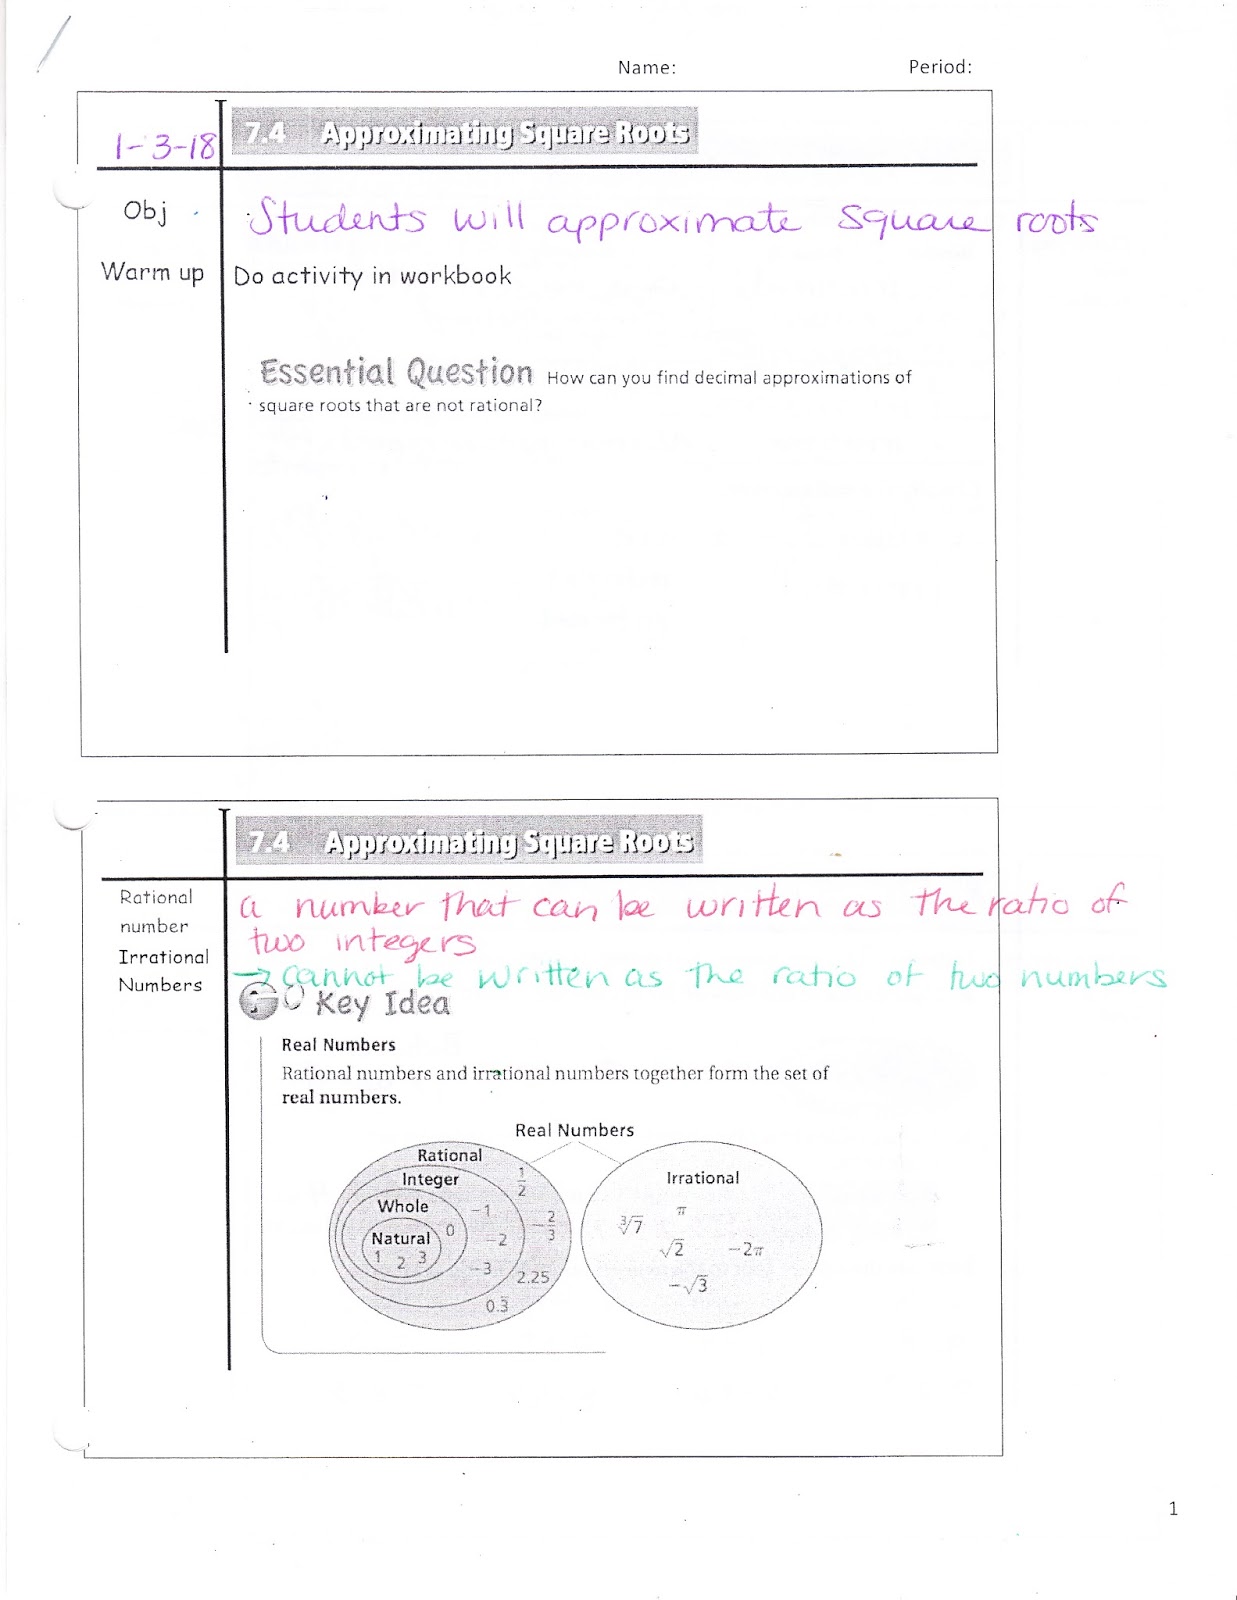 Name: Period:
1-3-18 7.4 Approximating Square Roots
Obj Students will approximate square roots
Warm up Do activity in workbook
Essential Question How can you find decimal approximations of
square roots that are not rational?
7.4 Approximating Square Roots
Rational
number
Irrational
Numbers
a number that can be written as the ratio of
two integers
→ cannot be written as the ratio of two numbers
Key Idea
Real Numbers
Rational numbers and irrational numbers together form the set of
real numbers.
Real Numbers
Rational
Integer
Whole
Natural
1 2 3
0
-1
-2
-3
1/2
-2/3
2.25
0.3̅
Irrational
∛7 π
√2 -2π
-√3
1